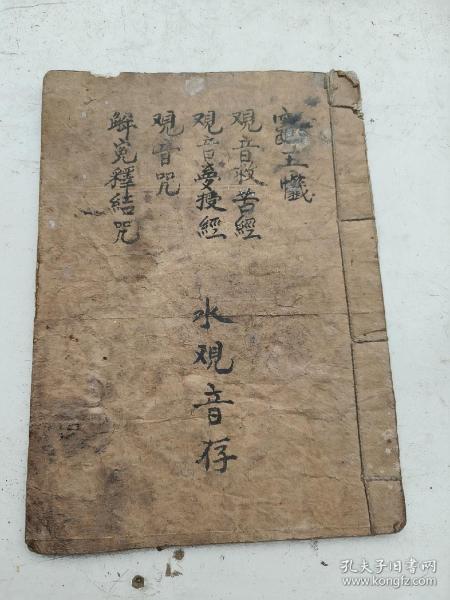 竈王懺
观音救苦經
观音夢授經
观音咒
解冤釋結咒
水观音存
孔夫子旧书网
www.kongfz.com